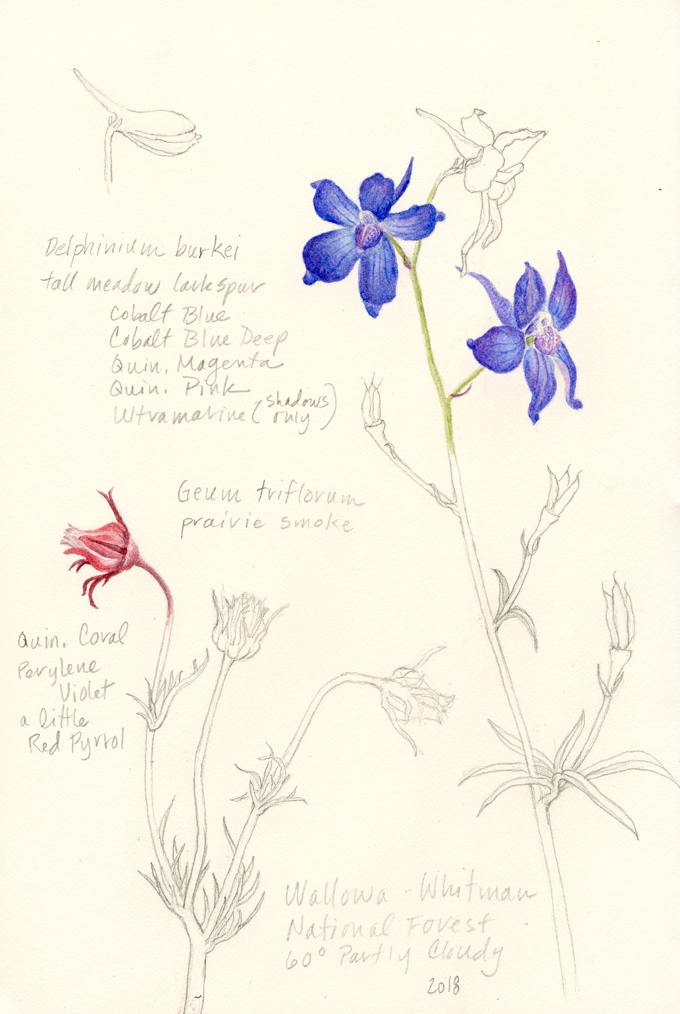 Delphinium burkei
tall meadow larkspur
Cobalt Blue
Cobalt Blue Deep
Quin. Magenta
Quin. Pink
Ultramarine (shadows only)
Geum triflorum
prairie smoke
Quin. Coral
Perylene
Violet
a little
Red Pyrrol
Wallowa - Whitman
National Forest
60° Partly Cloudy
2018